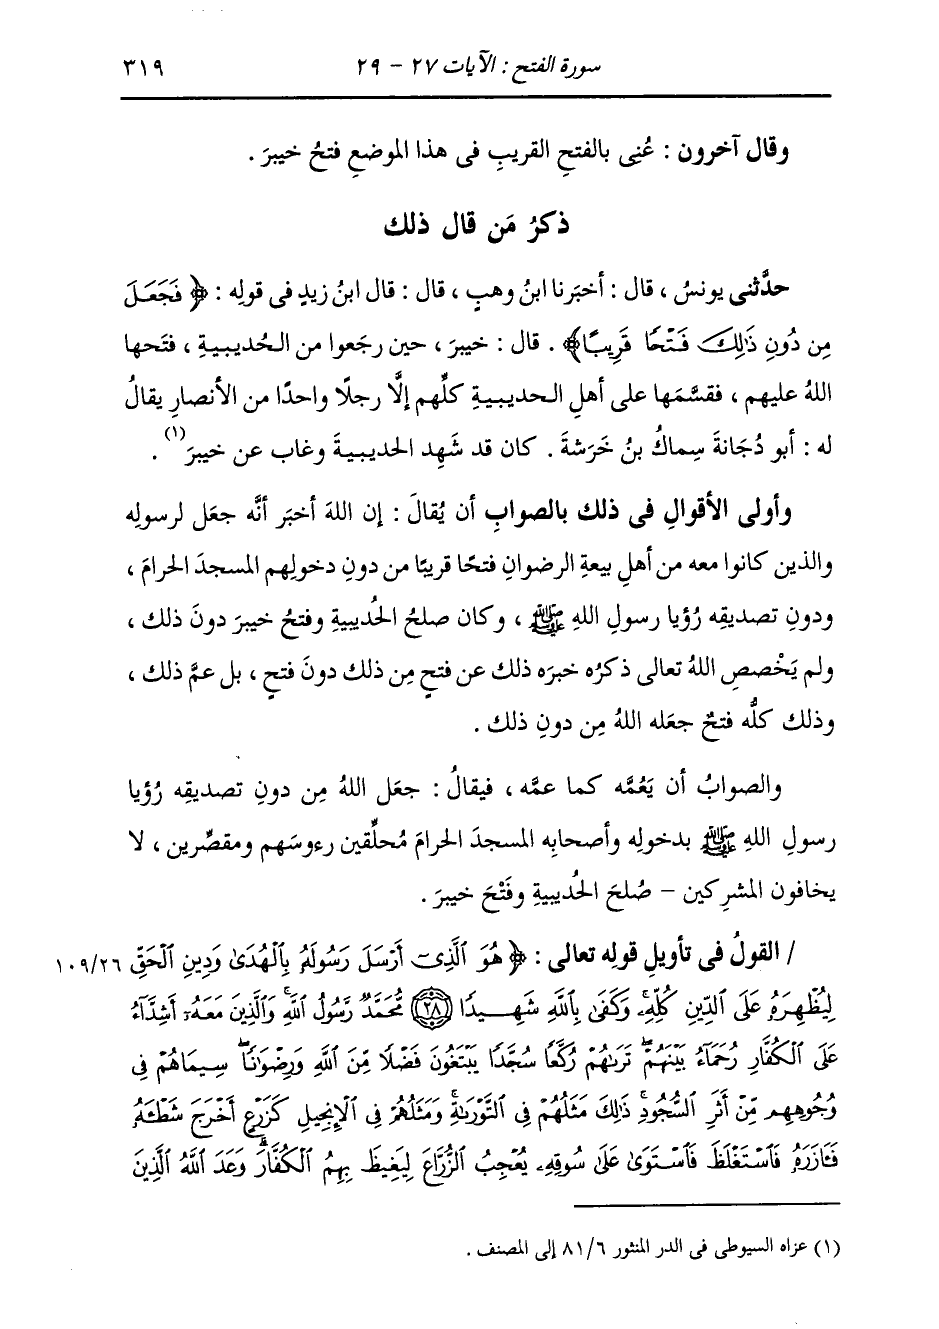 سورة الفتح : الآيات ٢٧ - ٢٩ ٣١٩
وقال آخرون : عُنِى بالفتحِ القريبِ فى هذا الموضعِ فتحُ خيبرَ .
ذكرُ مَن قال ذلك
حدَّثنى يونسُ ، قال : أخبَرنا ابنُ وهبٍ ، قال : قال ابنُ زيدٍ فى قولِه : ﴿ فَجَعَلَ
مِن دُونِ ذَٰلِكَ فَتْحًا قَرِيبًا﴾ . قال : خيبرَ ، حين رجَعوا من الحُديبيةِ ، فتَحها
اللهُ عليهم ، فقسَّمَها على أهلِ الحديبيةِ كلِّهم إلَّا رجلًا واحدًا من الأنصارِ يقالُ
له : أبو دُجَانةَ سِماكُ بنُ خَرَشةَ . كان قد شَهِد الحديبيةَ وغاب عن خيبرَ(١) .
وأولى الأقوالِ فى ذلك بالصوابِ أن يُقالَ : إن اللهَ أخبَر أنَّه جعَل لرسولِه
والذين كانوا معه من أهلِ بيعةِ الرضوانِ فتحًا قريبًا من دونِ دخولِهم المسجدَ الحرامَ ،
ودونِ تصديقِه رُؤيا رسولِ اللهِ ﷺ ، وكان صلحُ الحُديبيةِ وفتحُ خيبرَ دونَ ذلك ،
ولم يَخْصصِ اللهُ تعالى ذكرُه خبرَه ذلك عن فتحٍ مِن ذلك دونَ فتحٍ ، بل عمَّ ذلك ،
وذلك كلُّه فتحٌ جعَله اللهُ مِن دونِ ذلك .
والصوابُ أن يَعُمَّه كما عمَّه ، فيقالُ : جعَل اللهُ مِن دونِ تصديقِه رُؤيا
رسولِ اللهِ ﷺ بدخولِه وأصحابِه المسجدَ الحرامَ مُحلِّقين رءوسَهم ومقصِّرين ، لا
يخافون المشرِكين - صُلحَ الحُديبيةِ وفَتْحَ خيبرَ .
/ القولُ فى تأويلِ قولِه تعالى : ﴿ هُوَ ٱلَّذِىٓ أَرْسَلَ رَسُولَهُۥ بِٱلْهُدَىٰ وَدِينِ ٱلْحَقِّ ١٠٩/٢٦
لِيُظْهِرَهُۥ عَلَى ٱلدِّينِ كُلِّهِۦۚ وَكَفَىٰ بِٱللَّهِ شَهِيدًا ﴿٢٨﴾ مُّحَمَّدٌ رَّسُولُ ٱللَّهِۚ وَٱلَّذِينَ مَعَهُۥٓ أَشِدَّآءُ
عَلَى ٱلْكُفَّارِ رُحَمَآءُ بَيْنَهُمْۖ تَرَىٰهُمْ رُكَّعًا سُجَّدًا يَبْتَغُونَ فَضْلًا مِّنَ ٱللَّهِ وَرِضْوَٰنًاۖ سِيمَاهُمْ فِى
وُجُوهِهِم مِّنْ أَثَرِ ٱلسُّجُودِۚ ذَٰلِكَ مَثَلُهُمْ فِى ٱلتَّوْرَىٰةِۚ وَمَثَلُهُمْ فِى ٱلْإِنجِيلِ كَزَرْعٍ أَخْرَجَ شَطْـَٔهُۥ
فَـَٔازَرَهُۥ فَٱسْتَغْلَظَ فَٱسْتَوَىٰ عَلَىٰ سُوقِهِۦ يُعْجِبُ ٱلزُّرَّاعَ لِيَغِيظَ بِهِمُ ٱلْكُفَّارَۗ وَعَدَ ٱللَّهُ ٱلَّذِينَ
(١) عزاه السيوطى فى الدر المنثور ٨١/٦ إلى المصنف .